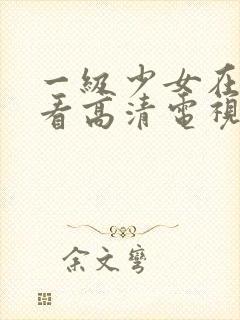 一級少女在
看高清電視
余文彎